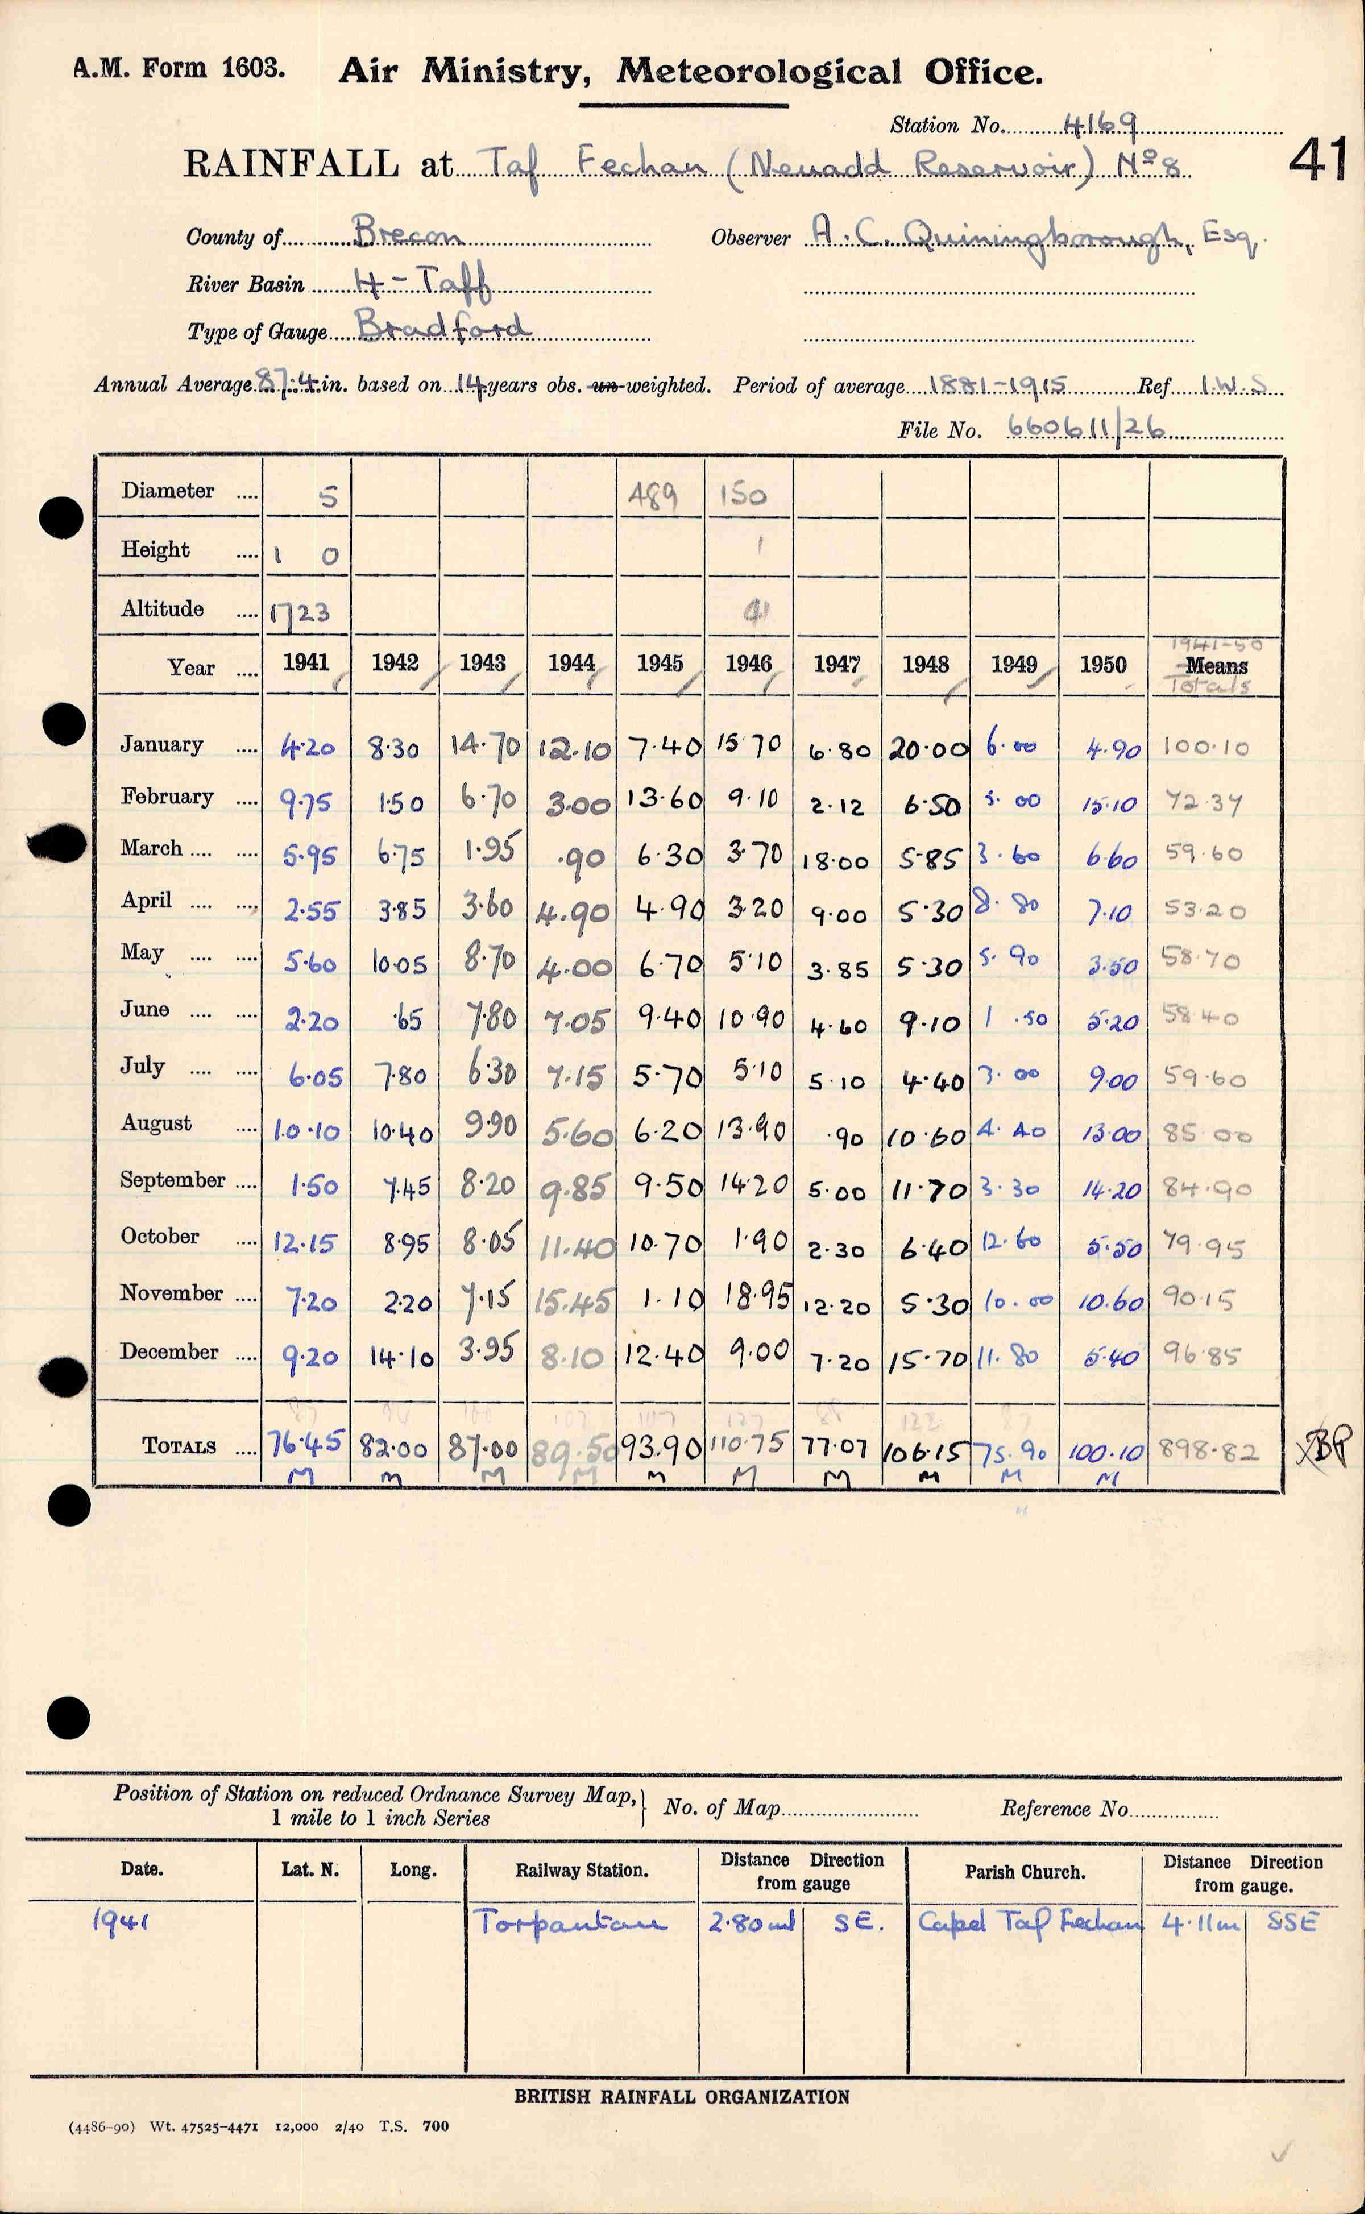 A.M. Form 1603. Air Ministry, Meteorological Office.
Station No. 4169
RAINFALL at Taf Fechan (Neuadd Reservoir) Nº8 41
County of Brecon Observer A.C. Quiningborough, Esq.
River Basin H - Taff
Type of Gauge Bradford
Annual Average 87.4 in. based on 14 years obs. un-weighted. Period of average 1881-1915 Ref. I.W.S
File No. 660611/26
Diameter .... 5 489 150
Height .... 1 0 1
Altitude .... 1723
1941-50
Year .... 1941 1942 1943 1944 1945 1946 1947 1948 1949 1950 Means
Totals
January .... 4.20 8.30 14.70 12.10 7.40 15.70 6.80 20.00 6.00 4.90 100.10
February .... 9.75 1.50 6.70 3.00 13.60 9.10 2.12 6.50 5.00 15.10 72.37
March .... .... 5.95 6.75 1.95 .90 6.30 3.70 18.00 5.85 3.60 6.60 59.60
April .... .... 2.55 3.85 3.60 4.90 4.90 3.20 9.00 5.30 8.80 7.10 53.20
May .... .... 5.60 10.05 8.70 4.00 6.70 5.10 3.85 5.30 5.90 3.50 58.70
June .... .... 2.20 .65 7.80 7.05 9.40 10.90 4.60 9.10 1.50 5.20 58.40
July .... .... 6.05 7.80 6.30 7.15 5.70 5.10 5.10 4.40 3.00 9.00 59.60
August .... 10.10 10.40 9.90 5.60 6.20 13.90 .90 10.60 4.40 13.00 85.00
September .... 1.50 7.45 8.20 9.85 9.50 14.20 5.00 11.70 3.30 14.20 84.90
October .... 12.15 8.95 8.05 11.40 10.70 1.90 2.30 6.40 12.60 5.50 79.95
November .... 7.20 2.20 7.15 15.45 1.10 18.95 12.20 5.30 10.00 10.60 90.15
December .... 9.20 14.10 3.95 8.10 12.40 9.00 7.20 15.70 11.80 5.40 96.85
TOTALS .... 76.45 82.00 87.00 89.50 93.90 110.75 77.07 106.15 75.90 100.10 898.82 BP
M M M M M M M M M M
Position of Station on reduced Ordnance Survey Map, 1 mile to 1 inch Series } No. of Map Reference No.
Date. Lat. N. Long. Railway Station. Distance Direction from gauge Parish Church. Distance Direction from gauge.
1941 Torpantau 2.80ml SE. Capel Taf Fechan 4.11m SSE
BRITISH RAINFALL ORGANIZATION
(4486-90) Wt. 47525-4471 12,000 2/40 T.S. 700